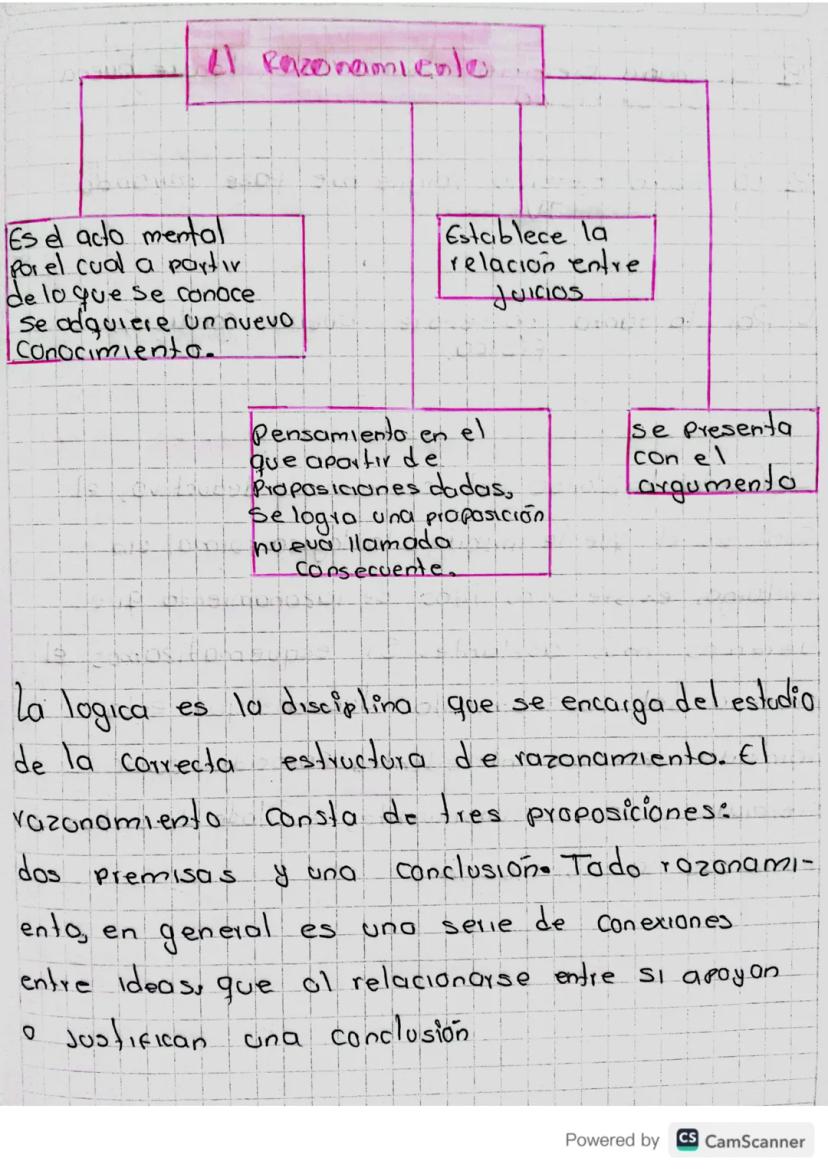 El Razonamiento
Es el acto mental
por el cual a partir
de lo que se conoce
se adquiere un nuevo
conocimiento.
Establece la
relación entre
juicios
Pensamiento en el
que apartir de
Proposiciones dadas,
se logra una proposición
nueva llamada
consecuente.
se presenta
con el
argumento
La logica es la disciplina que se encarga del estudio
de la correcta estructura de razonamiento. El
razonamiento consta de tres proposiciones:
dos premisas y una conclusión. Todo razonami-
ento, en general es una serie de conexiones
entre ideas, que al relacionarse entre si apoyan
o justifican una conclusión
Powered by CS CamScanner